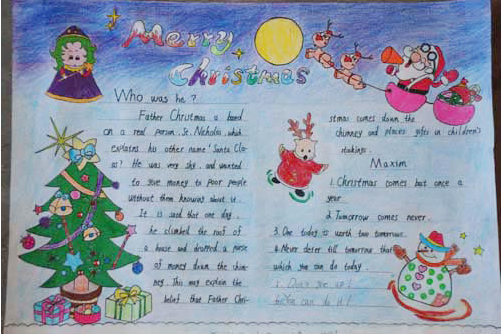 Merry
Christmas
Who was he ?
Father Christmas is based
on a real person. St. Neholis, which
explains his other name 'Santa Cla-
as? He was very shy, and wanted
to give money to poor people
without them knowing about it.
It is said that one day,
he climbed the roof of
a house and dropped a purse
of money down the chim-
ney. This may explain the
belief that Father Chri-
stmas comes down the
chimney and places gifts in children's
stockings.
Maxim
1. Christmas comes but once a
year.
2. Tumorrow comes never.
3. One today is worth two tomorrows.
4. Never deter till tomorrow that
which you can do today.
1. Don't give up!
You can do it!